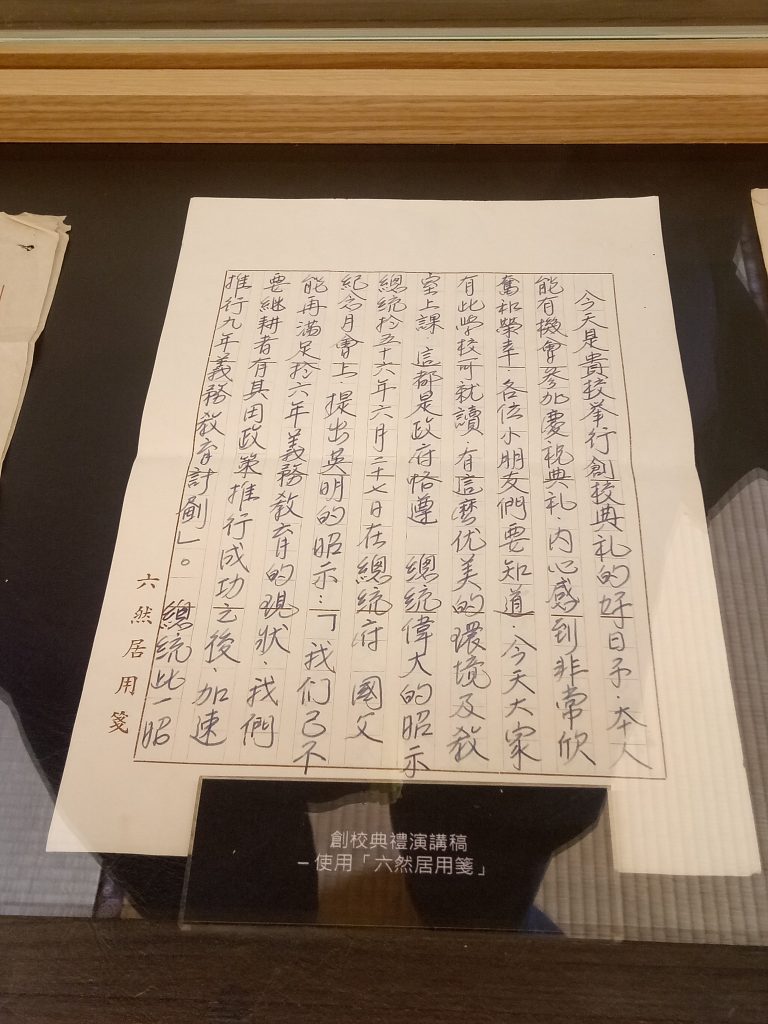 今天是貴校举行創校典礼的好日子．本人
能有機會参加慶祝典礼．内心感到非常欣
奮和榮幸．各位小朋友們要知道．今天大家
有此学校可就讀．有這麽优美的環境及教
室上課．這都是政府恪遵　總統偉大的昭示
總統於五十六年六月二十七日在總統府　國父
紀念月會上．提出英明的昭示：「我们已不
能再滿足於六年義務教育的現狀．我們
要継耕者有其田政策推行成功之後．加速
推行九年義務教育計劃」。　總統此一昭
六然居用箋
創校典禮演講稿
–使用「六然居用箋」